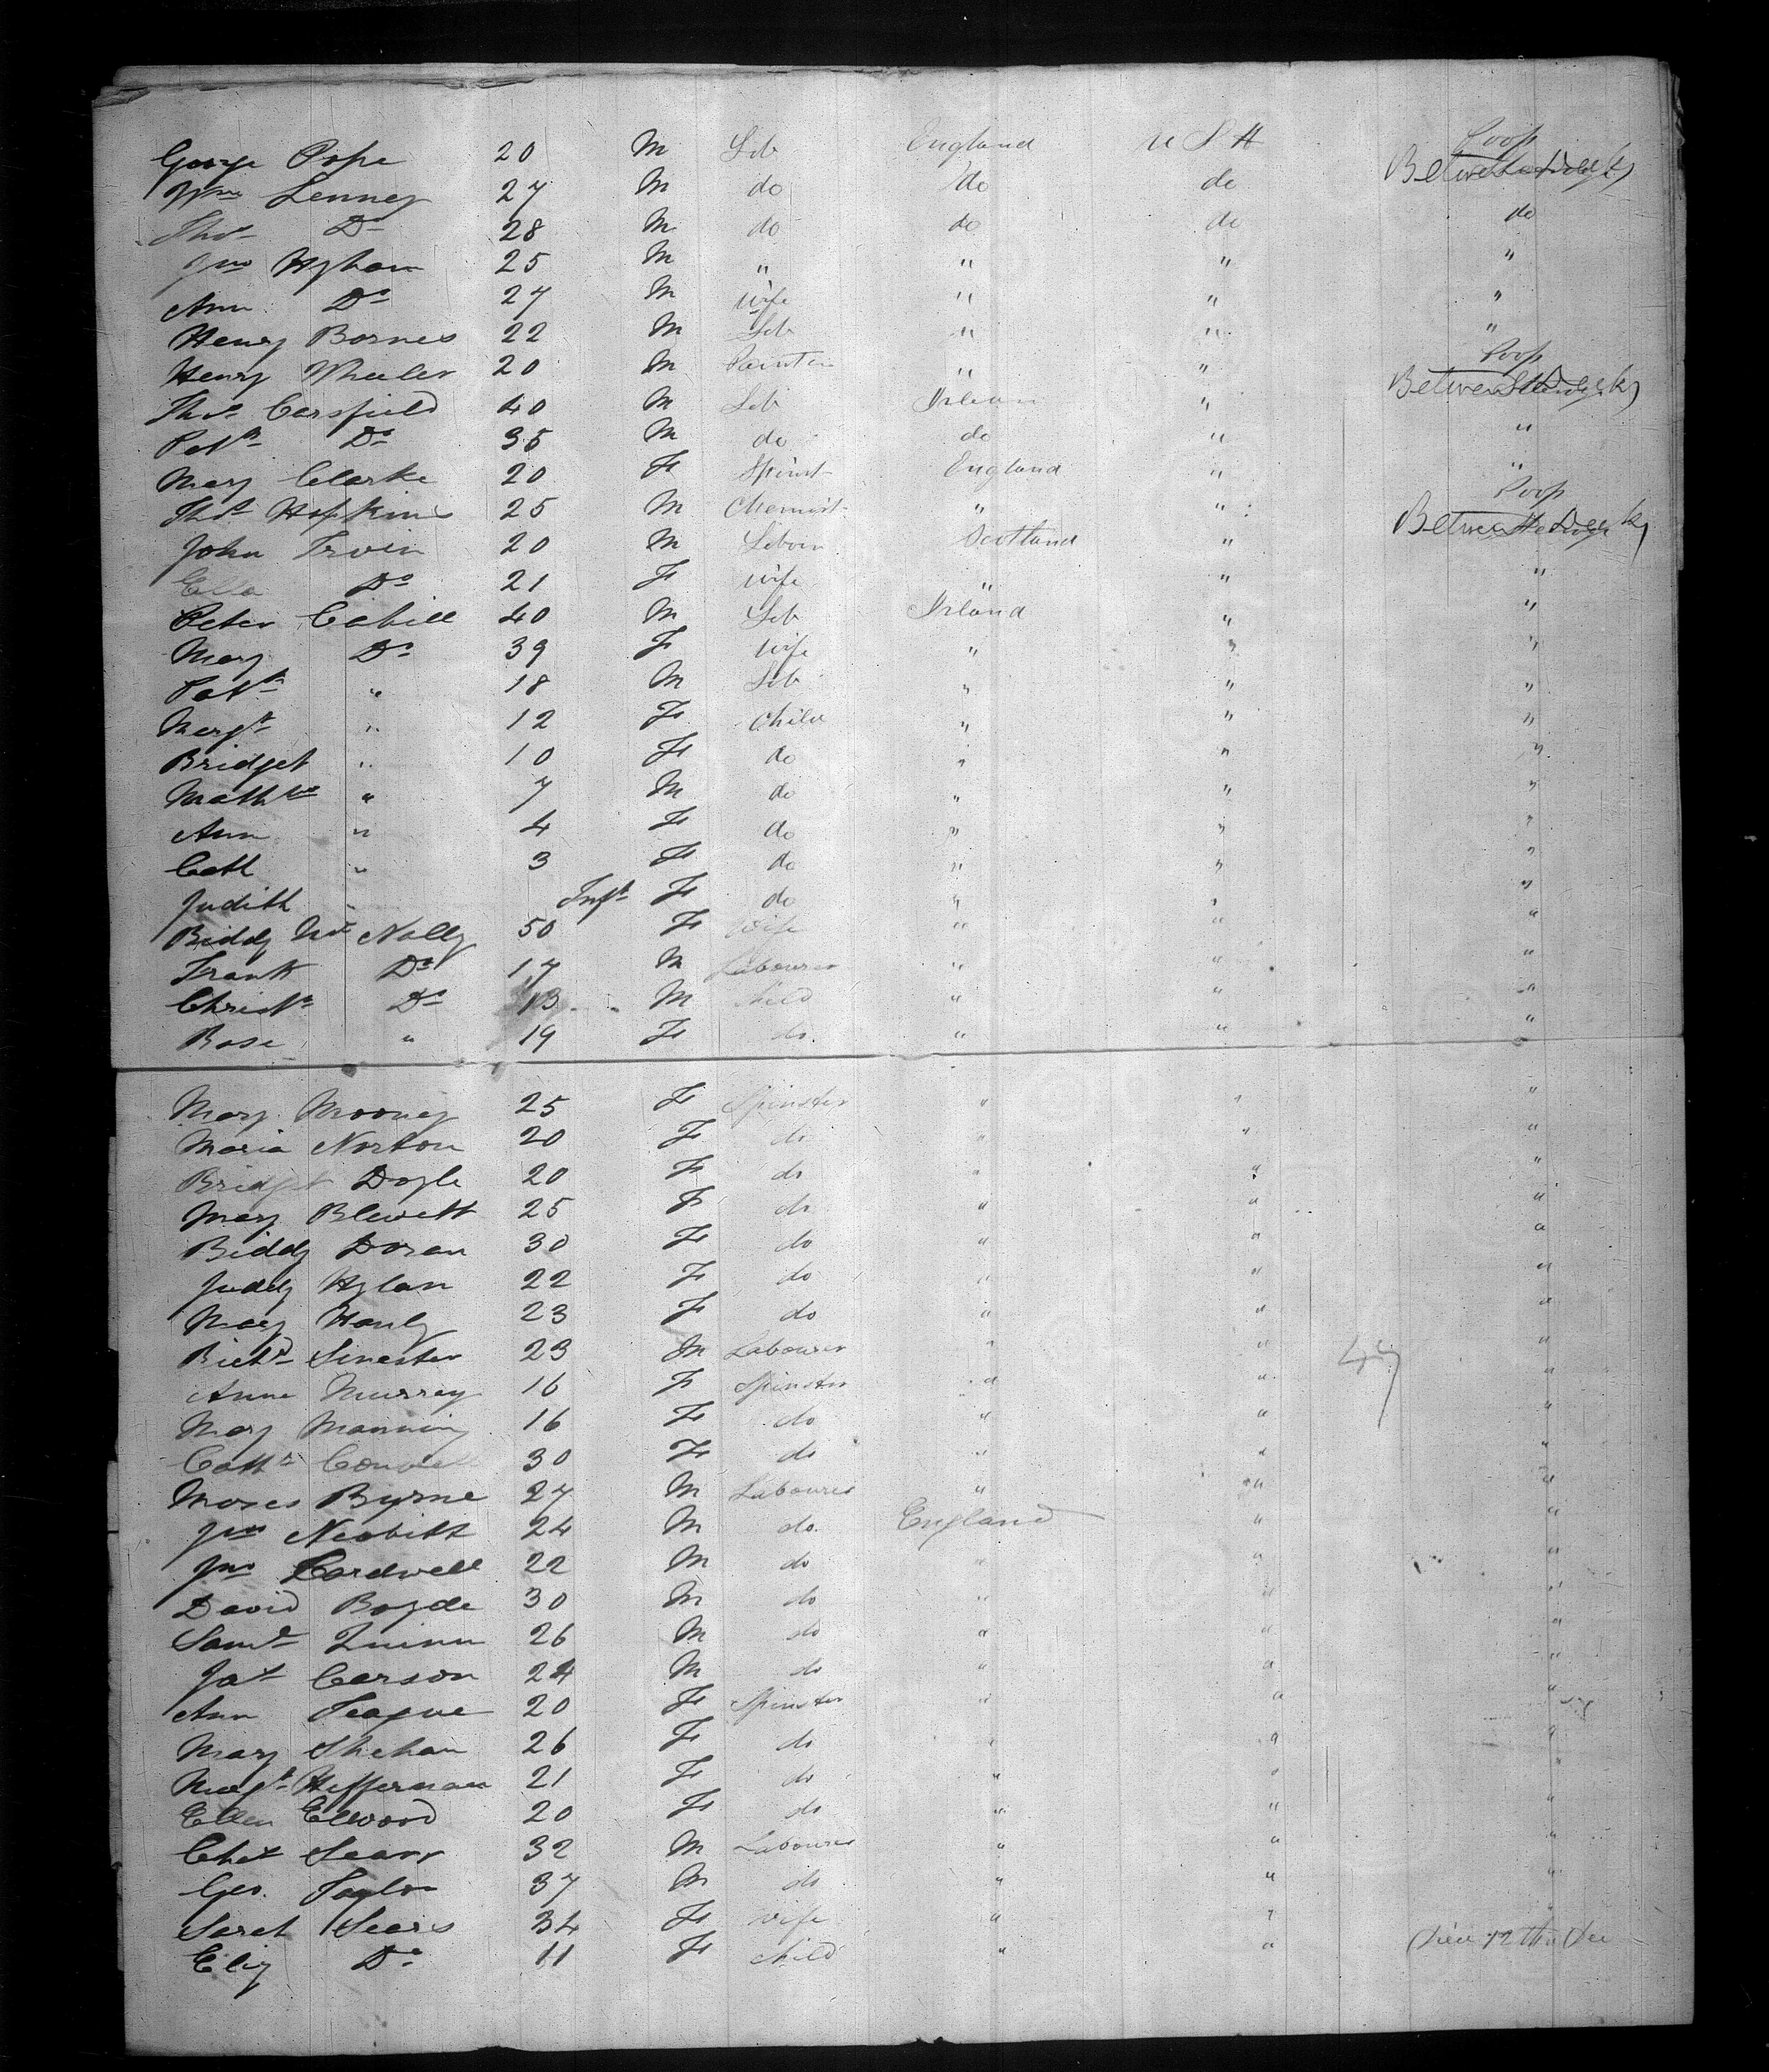 George Pope 20 M Lab England U S A Poop
Wm Lenney 27 M do do do Between Decks
Thos Do 28 M do do do do
Jno Hyham 25 M " " " "
Ann Do 27 M wife " " "
Henry Barnes 22 M Lab " " "
Henry Wheeler 20 M Painter " " Poop
Thos Carsfield 40 M Lab Irelan " Between Decks
Patk Do 35 M do do " "
Mary Clarke 20 F Spinst England " "
Thos Hopkins 25 M Chemist " " Poop
John Irvin 20 M Labour Scotland " Between Decks
Ella Do 21 F wife " " "
Peter Cahill 40 M Lab Irland " "
Mary Do 39 F wife " " "
Patk " 18 M Lab " " "
Margt " 12 F Child " " "
Bridget " 10 F do " " "
Mathw " 7 M do " " "
Ann " 4 F do " " "
Cath " 3 F do " " "
Judith " Inft F do " " "
Biddy Mc Nally 50 F wife " " "
Frank Do 17 M Labourer " " "
Christr Do 13 M child " " "
Rose " 19 F do " " "
Mary Mooney 25 F Spinster " " "
Maria Norton 20 F do " " "
Bridget Doyle 20 F do " " "
Mary Blewett 25 F do " " "
Biddy Doran 30 F do " " "
Judy Hylan 22 F do " " "
Mary Hanly 23 F do " " "
Richd Sinester 23 M Labourer " " 47 "
Anne Murray 16 F Spinster " " "
Mary Manning 16 F do " " "
Cathe 30 F do " " "
Moses Byrne 27 M Labourer " " "
Jno Nesbitt 24 M do England " "
Jno Cardwell 22 M do " " "
David Bogde 30 M do " " "
Saml Quinn 26 M do " " "
Jas Carson 24 M do " " "
Ann Teague 20 F Spinster " " "
Mary Shehan 26 F do " " "
Margt Heffernan 21 F do " " "
Ellen Elwood 20 F do " " "
Chas Sears 32 M Labourer " " "
Geo. Taylor 37 M do " " "
Sarah Sears 34 F wife " " "
Eliz Do 11 F child " " Died 12th Dec